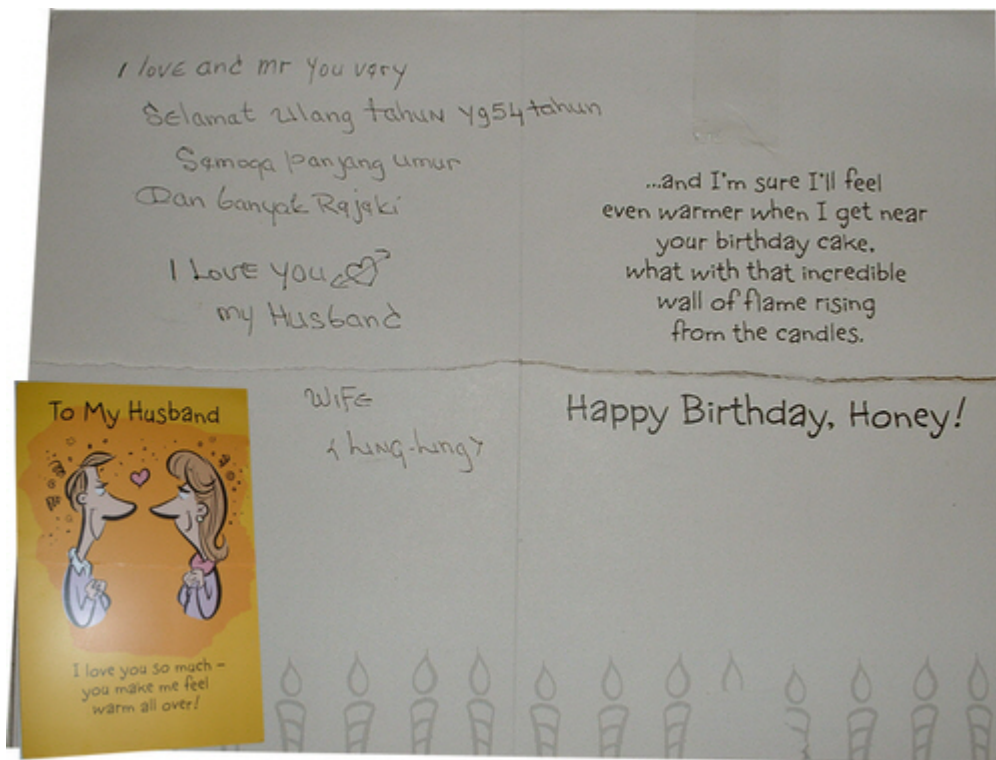 I love and mr you very
Selamat ulang tahun yg54 tahun
Semoga panjang umur
Dan banyak Rajaki
I Love you
my Husband
Wife
...and I'm sure I'll feel
even warmer when I get near
your birthday cake,
what with that incredible
wall of flame rising
from the candles.
Happy Birthday, Honey!
To My Husband
I love you so much –
you make me feel
warm all over!